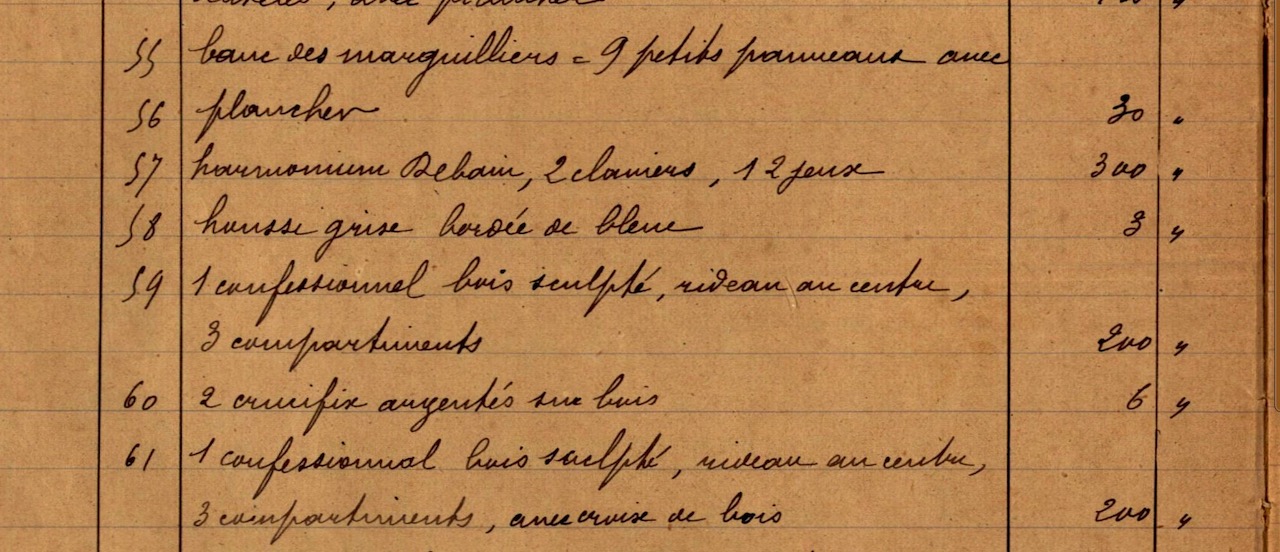 avec plancher
55 banc des marguilliers = 9 petits panneaux avec
56 plancher 30 "
57 harmonium Debain, 2 claviers, 12 jeux 300 "
58 housse grise bordée de bleue 3 "
59 1 confessionnel bois sculpté, rideau au centre,
3 compartiments 200 "
60 2 crucifix argentés sur bois 6 "
61 1 confessionnal bois sculpté, rideau au centre,
3 compartiments, avec croix de bois 200 "